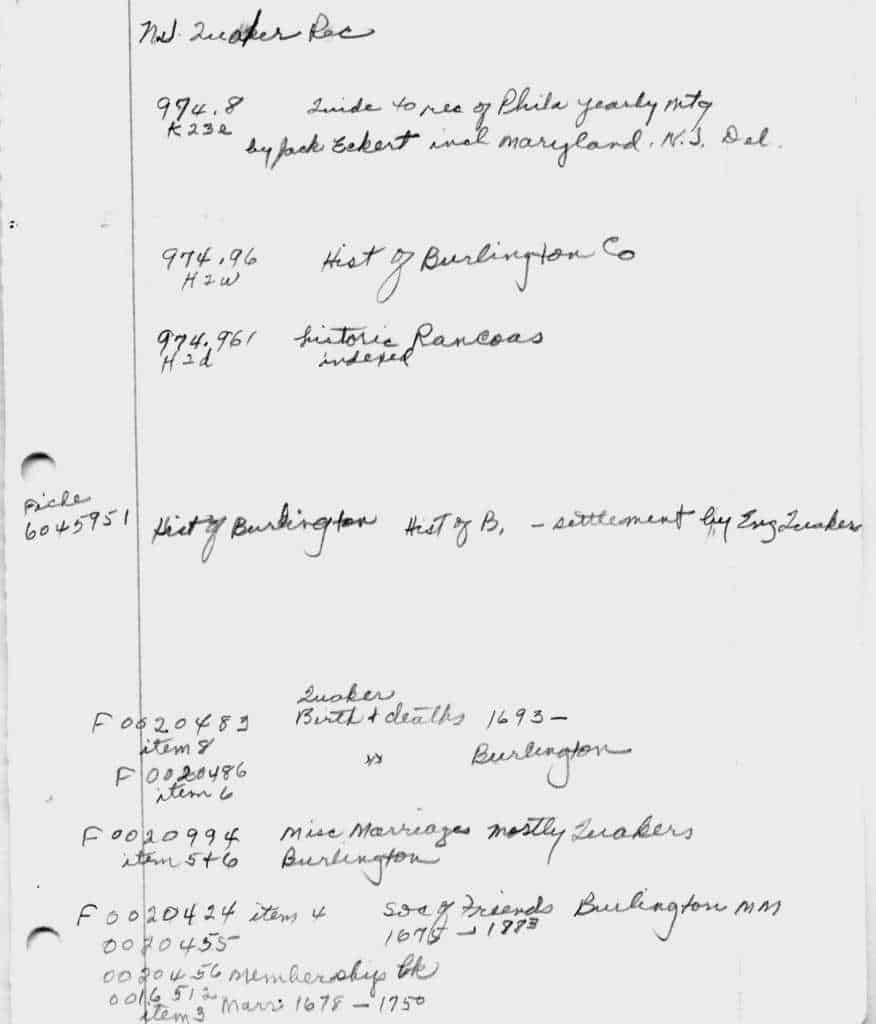 N.J. Quaker Rec
974.8 Guide to rec of Phila yearly mtg
K23e by Jack Eckert incl Maryland. N.J. Del.
974.96 Hist of Burlington Co
H2w
974.961 historic Rancoas
H2d indexed
Fiche
6045951 Hist of Burlington Hist of B. - settlement by Eng Quakers
Quaker
F 0020483 Birth & deaths 1693 -
item 8
" Burlington
F 0020486
item 6
F 0020994 Misc Marriages mostly Quakers
item 5+6 Burlington
F 0020424 item 4 Soc of Friends Burlington MM
0020455 1675 - 1883
0020456 membership bk
0016512 Marr: 1678 - 1750
item 3